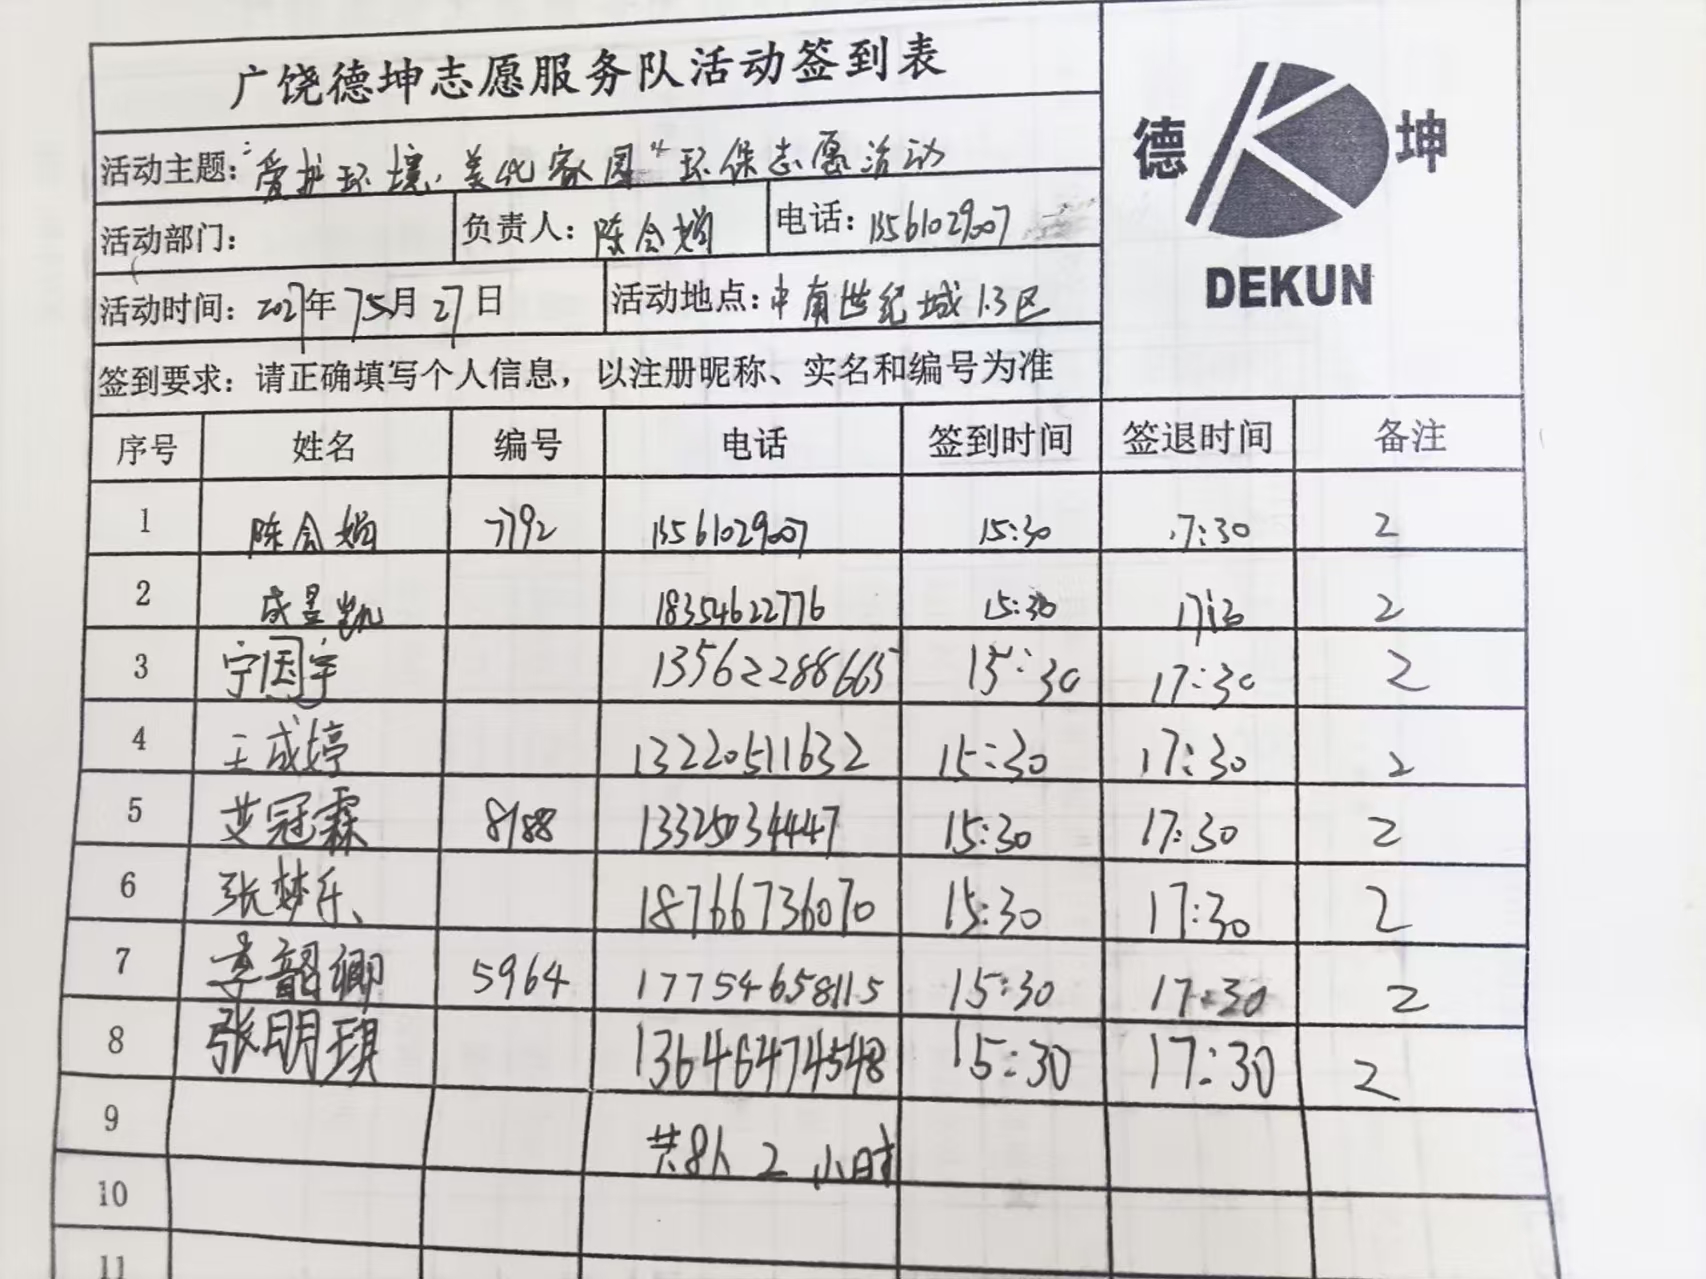 广饶德坤志愿服务队活动签到表
德 坤
DEKUN
活动主题："爱护环境，美化家园"环保志愿活动
活动部门： 负责人：陈会娟 电话：15561029007
活动时间：2027年 月27日 活动地点：中南世纪城1.3区
签到要求：请正确填写个人信息，以注册昵称、实名和编号为准
序号 姓名 编号 电话 签到时间 签退时间 备注
1 陈会娟 7792 15561029007 15:30 17:30 2
2 成昱凯 18354622776 15:30 17:30 2
3 宁国宇 13562288665 15:30 17:30 2
4 王成婷 13220511632 15:30 17:30 2
5 艾冠霖 8188 13325034447 15:30 17:30 2
6 张梦乐 18766736070 15:30 17:30 2
7 李韶卿 5964 17754658115 15:30 17:30 2
8 张明琪 13646474548 15:30 17:30 2
9 共8人 2 小时
10
11